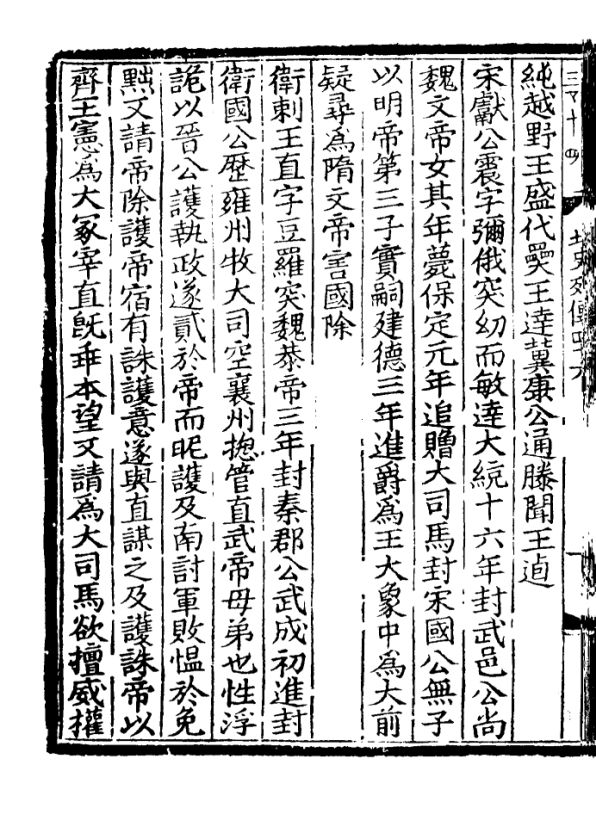 純越野王盛代奰王達兾康公通滕聞王逌
宋獻公震字彌俄突幼而敏達大統十六年封武邑公尚
魏文帝女其年薨保定元年追贈大司馬封宋國公無子
以明帝第三子實嗣建德三年進爵爲王大象中爲大前
疑尋爲隋文帝害國除
衛剌王直字豆羅突魏㳟帝三年封秦郡公武成初進封
衛國公歴雍州牧大司空襄州揔管直武帝母弟也性浮
詭以晉公護執政遂貳於帝而昵護及南討軍敗愠於免
黜又請帝除護帝宿有誅護意遂與直謀之及護誅帝以
齊王憲爲大冢宰直旣乖本望又請爲大司馬欲擅威權